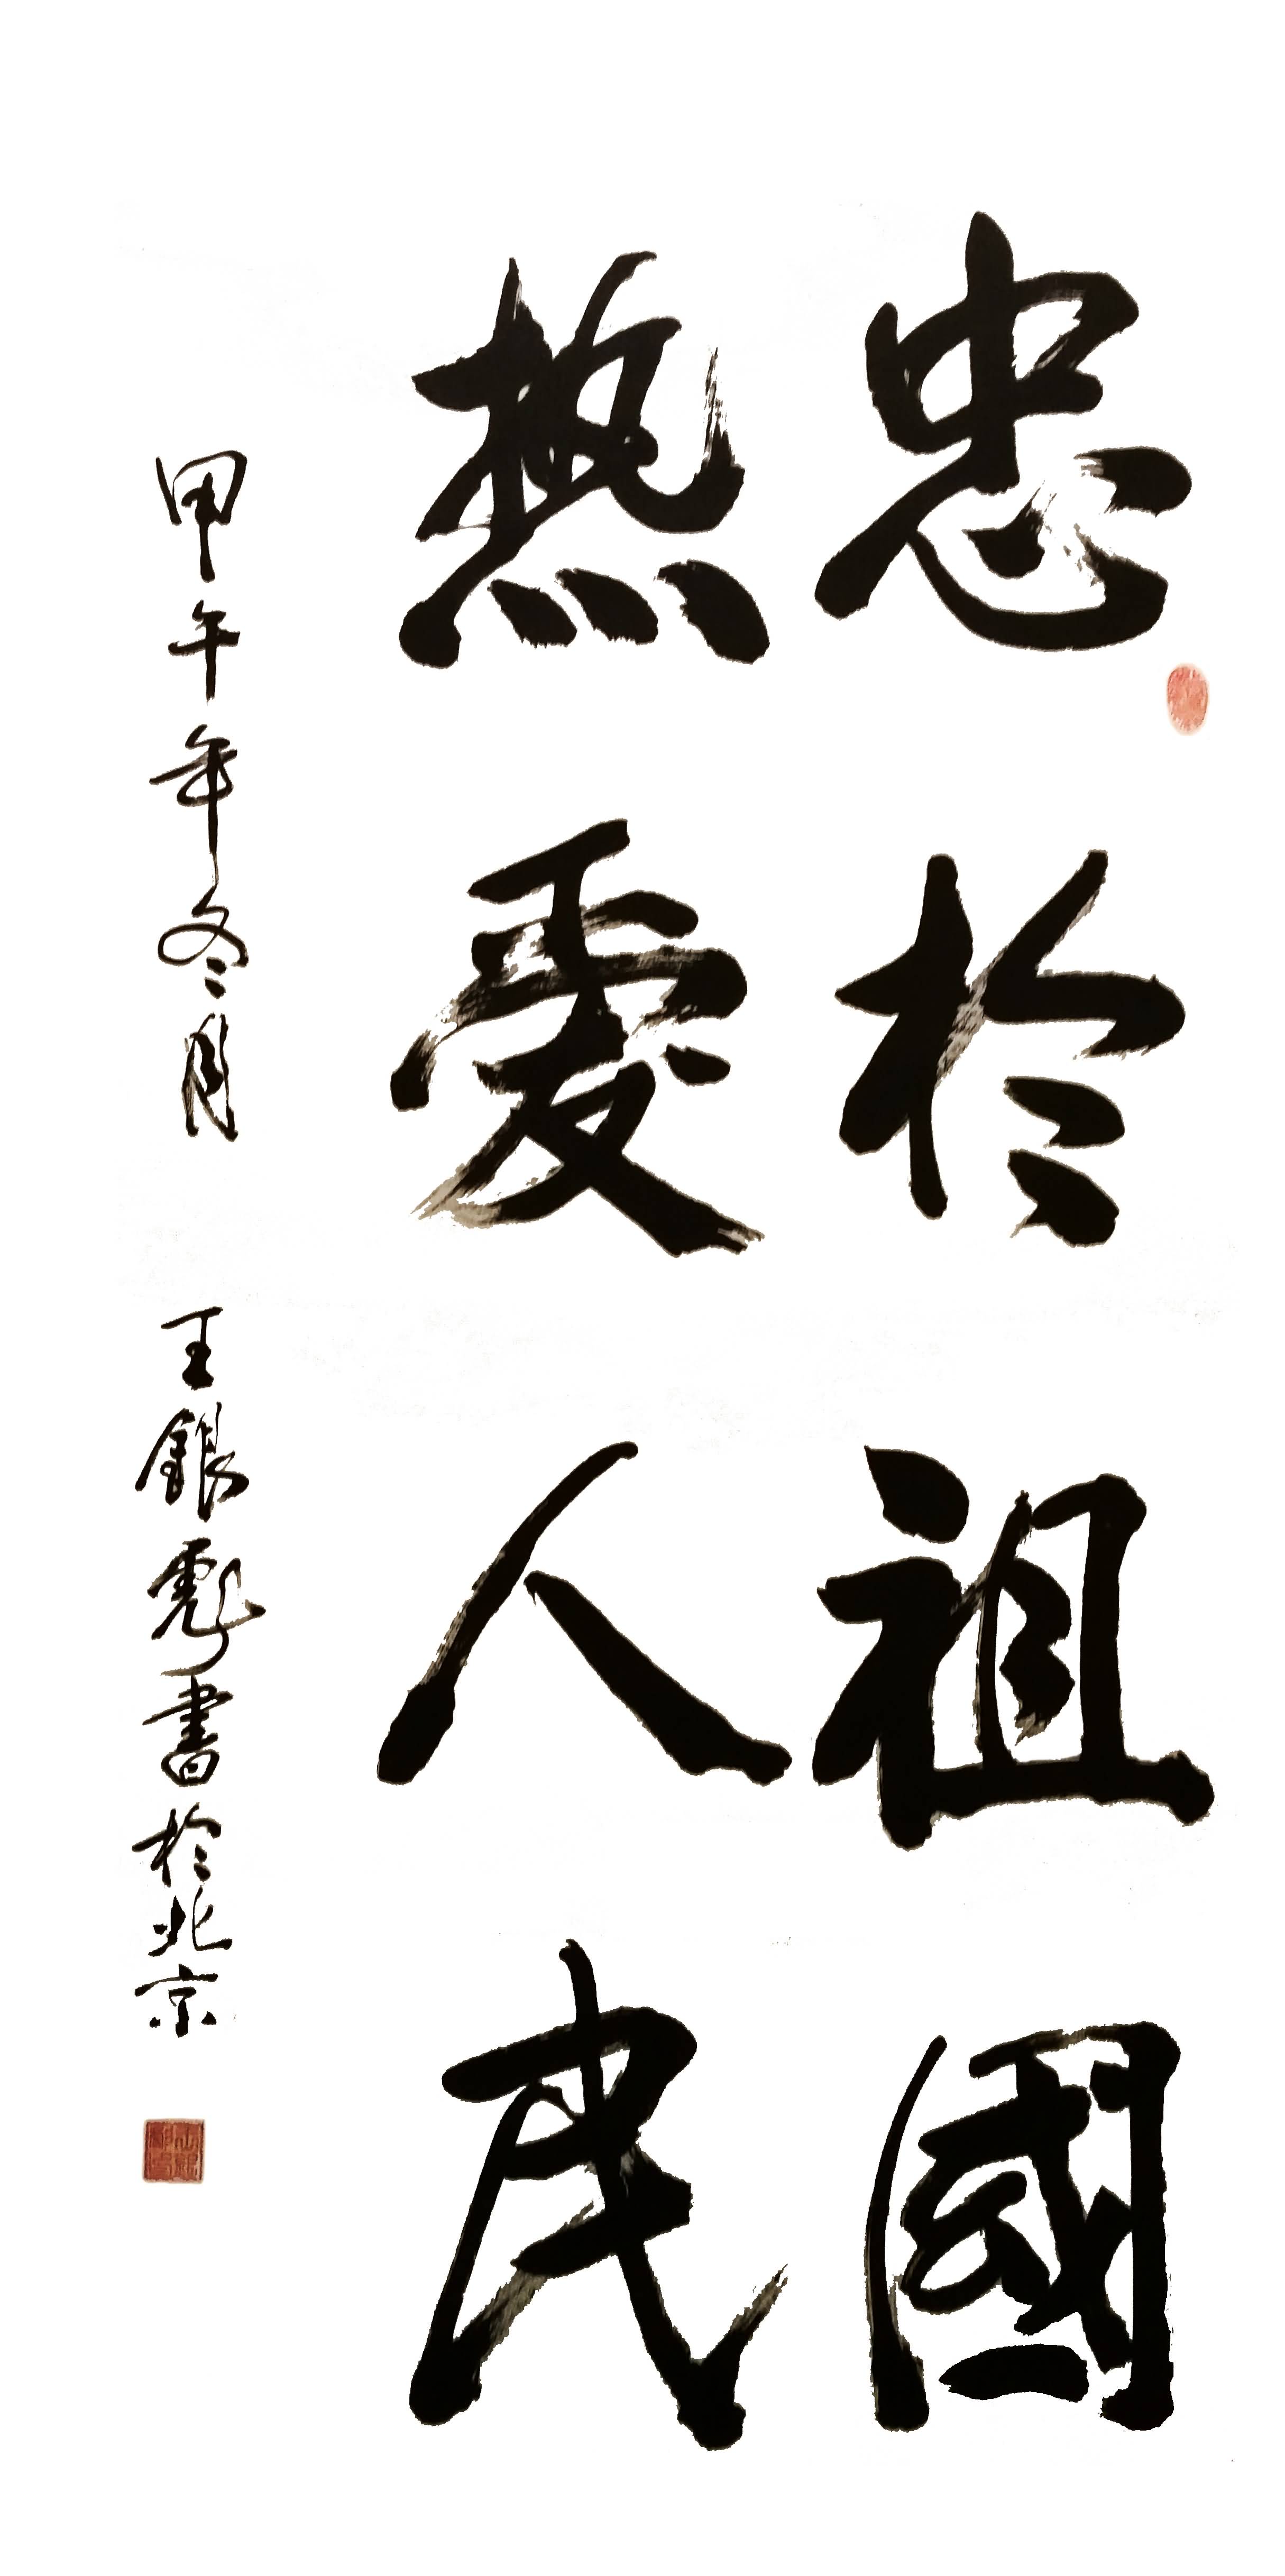 忠於祖國
热愛人民
甲午年冬月 王銀彪書於北京